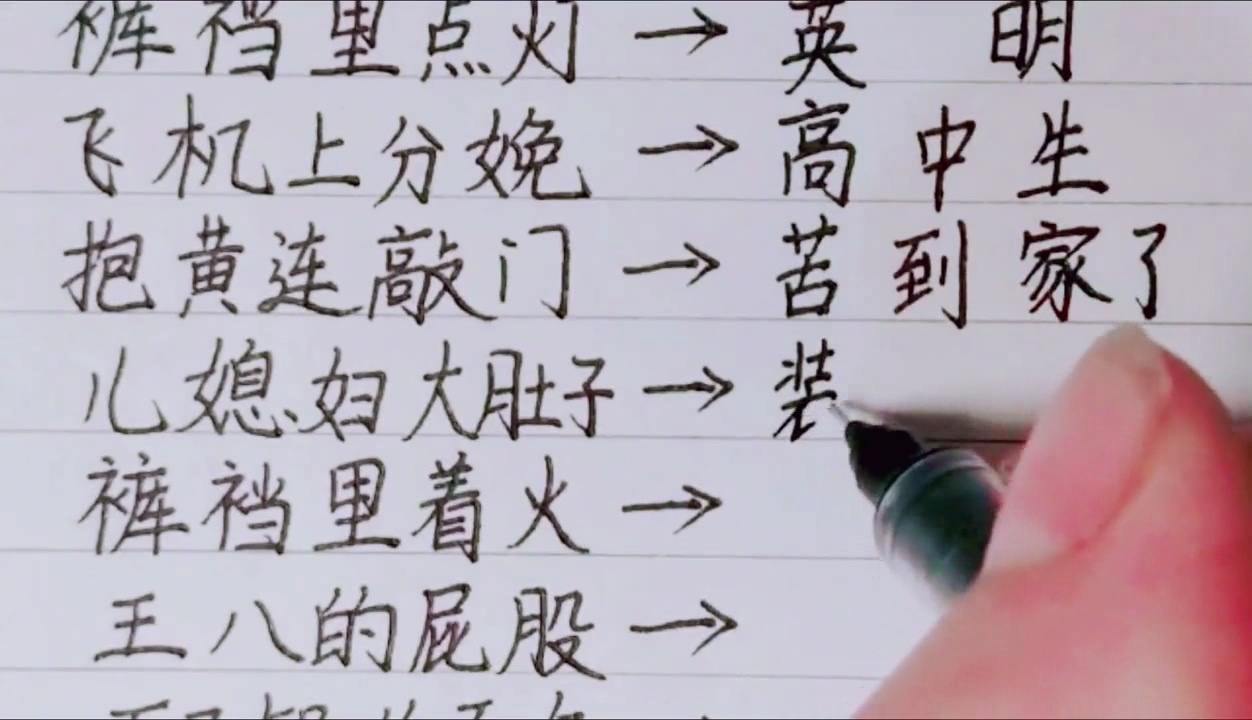 裤裆里点灯→英明
飞机上分娩→高中生
抱黄连敲门→苦到家了
儿媳妇大肚子→装
裤裆里着火→
王八的屁股→